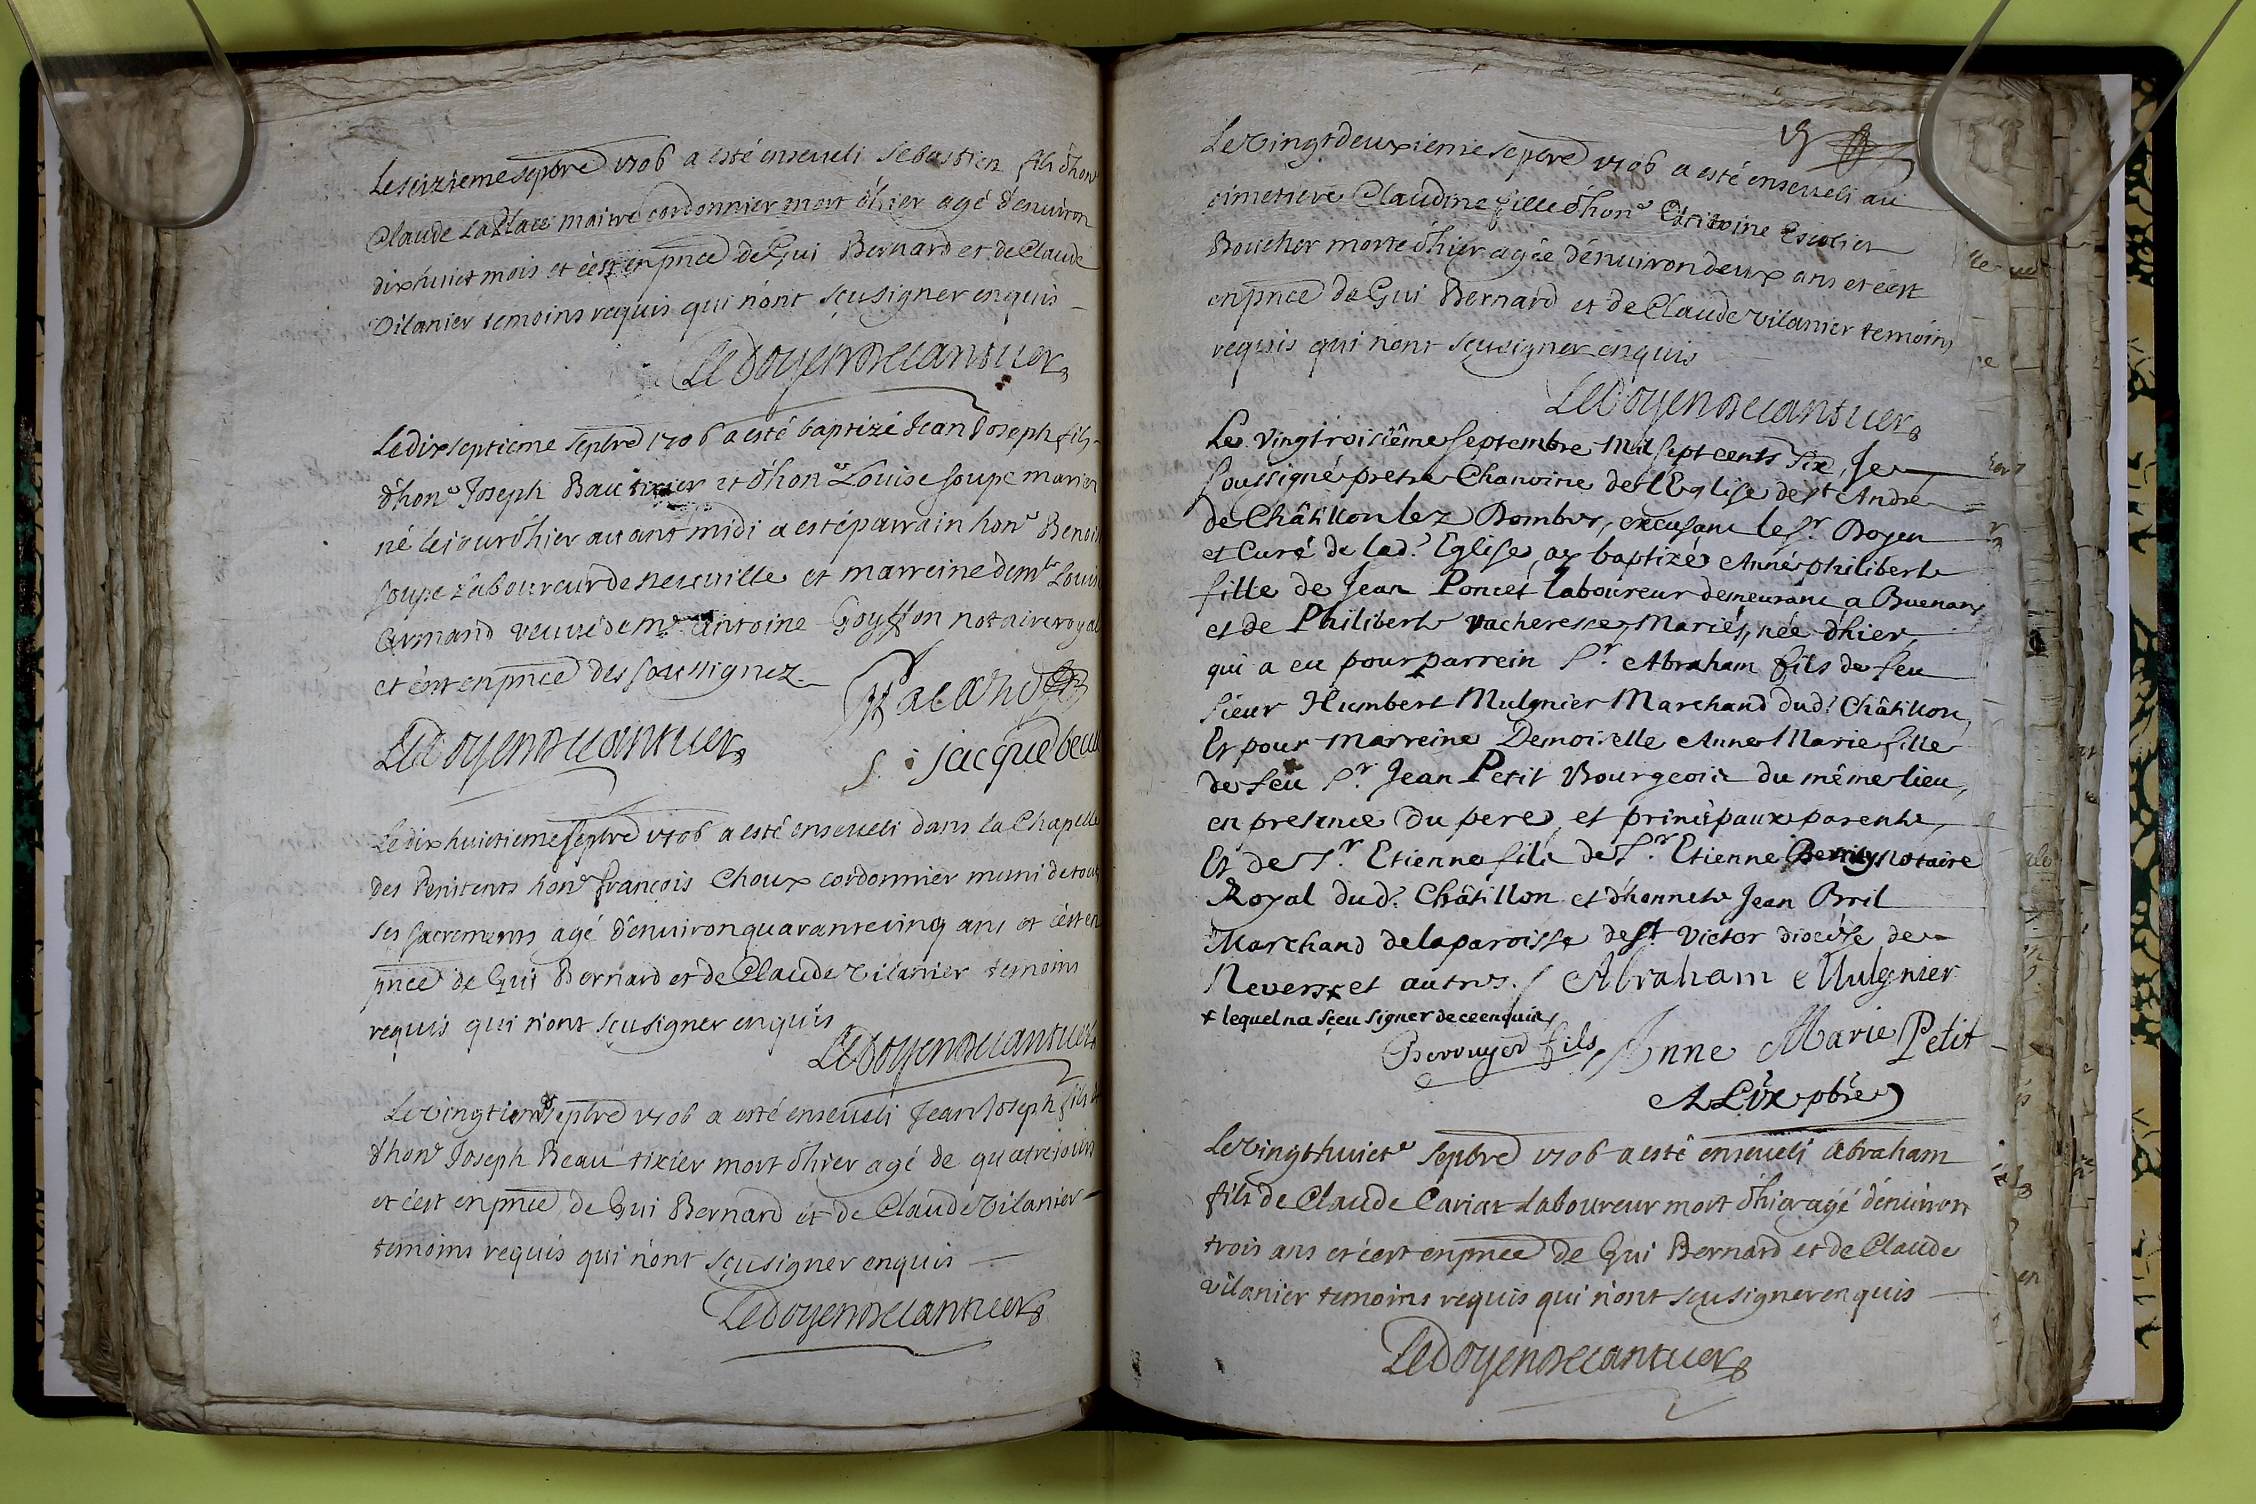 Le seizieme sepbre 1706 a esté enseueli Sebastien fils d'hon^e
Claude LaPlace maitre cordonnier mort d'hier agé d'enuiron
dixhuict mois et c'est en pnce de Gui Bernard et de Claude
Vilanier temoins requis qui n'ont sçu signer enquis
Le Doyen Decantuer
Le dixseptieme sepbre 1706 a esté baptizé Jean Joseph fils
d'hon^e Joseph Bautixier et d'hon^e Louise Soupe mariez
né le jour d'hier auant midi a esté parrain hon^e Benoit
Soupe Laboureur de neuuille et marreine dem^le Louise
Armand veuue de m^e Antoine Goyffon notaire royal
et c'est en pnce des soussignez
Le Doyen Decantuer
S. jacquebeau
Le dixhuictieme sepbre 1706 a esté enseueli dans la Chapelle
des Penitents hon^e françois Choux cordonnier muni de tous
ses sacrements agé d'enuiron quarante cinq ans et c'est en
pnce de Gui Bernard et de Claude Vilanier temoins
requis qui n'ont sçu signer enquis
Le Doyen Decantuer
Le vingtiem^e sepbre 1706 a esté enseueli Jean Joseph fils
d'hon^e Joseph Beautixier mort d'hier agé de quatre jours
et c'est en pnce de Gui Bernard et de Claude Vilanier
temoins requis qui n'ont sçu signer enquis
Le Doyen Decantuer
Le vingtdeuxieme sepbre 1706 a esté enseueli au
cimetiere Claudine fille d'hon^e Antoine Escolier
Boucher morte d'hier agée d'enuiron deux ans et c'est
en pnce de Gui Bernard et de Claude vilanier temoins
requis qui n'ont sçu signer enquis
Le Doyen Decantuer
Le vingtroisiême Septembre Mil sept cents six, Je
soussigné pretre Chanoine de l'Eglise de St André
de Châtillon lez Dombes, excusant le Sr. Doyen
et Curé de lad.e Eglise, ay baptizé Anne philiberte
fille de Jean Poncet laboureur demeurant a Buenans
et de Philiberte Vacheresse, Mariés, née d'hier,
qui a eu pour parrein Sr. Abraham fils de feu
sieur Humbert Mulgnier Marchand dud.t Châtillon,
Et pour Marreine Demoiselle Anne Marie fille
de feu Sr. Jean Petit Bourgeois du même lieu,
en presence du pere et principaux parents,
Et de Sr. Etienne fils de Sr. Etienne notaire
Royal dud.t Châtillon et d'honnete Jean Bril
Marchand de la paroisse de St Victor diocése de
Nevers + et autres. / Abraham Mulgnier
+ lequel n'a sçeu signer de ce enquis,
Berruyer fils Anne Marie Petit
ALix pbre
Le vingthuict^e sepbre 1706 a esté enseueli Abraham
fils de Claude Cariat Laboureur mort d'hier agé d'enuiron
trois ans et c'est en pnce de Gui Bernard et de Claude
vilanier temoins requis qui n'ont sçu signer enquis
Le Doyen Decantuer